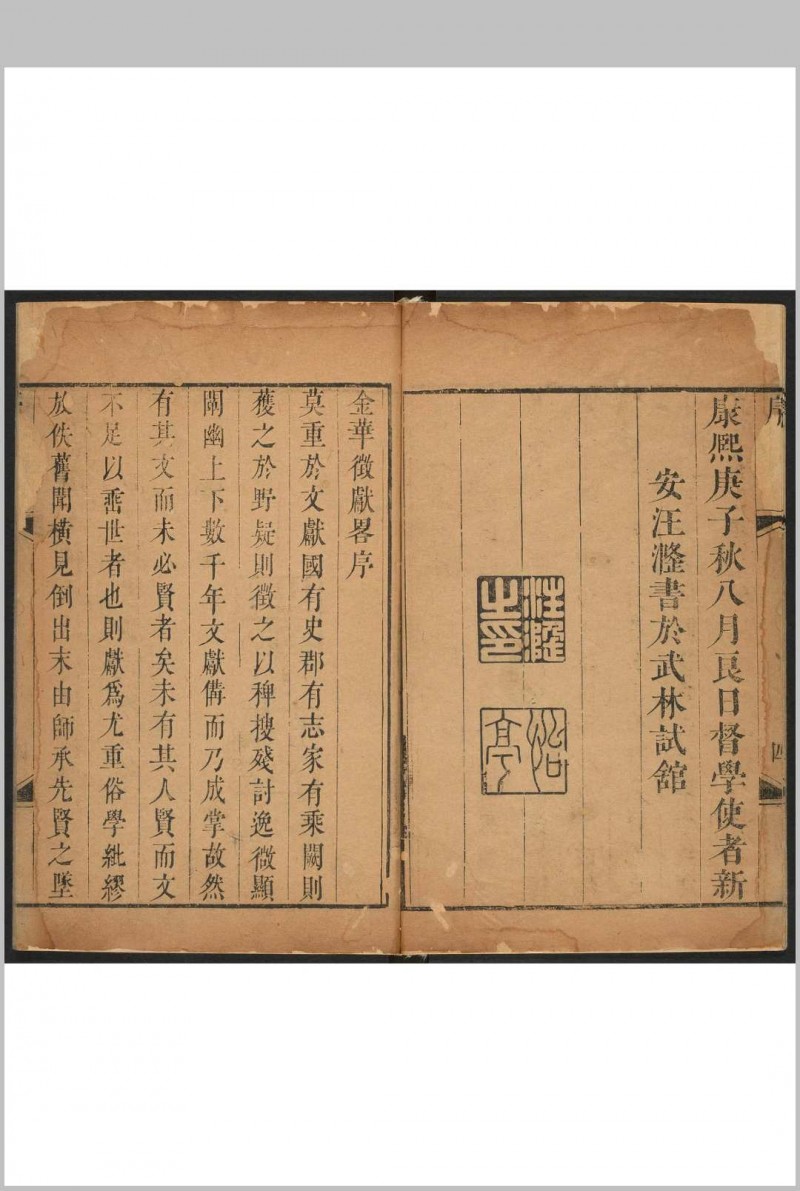 序
四
康熙庚子秋八月良日督學使者新
安汪漋書於武林試舘
汪漋之印
金華徵獻畧序
莫重於文獻國有史郡有志家有乘闕則
獲之於野疑則徵之以稗搜殘討逸微顯
闡幽上下數千年文獻備而乃成掌故然
有其文而未必賢者矣未有其人賢而文
不足以垂世者也則獻爲尤重俗學紕繆
放佚舊聞橫見倒出末由師承先賢之墜